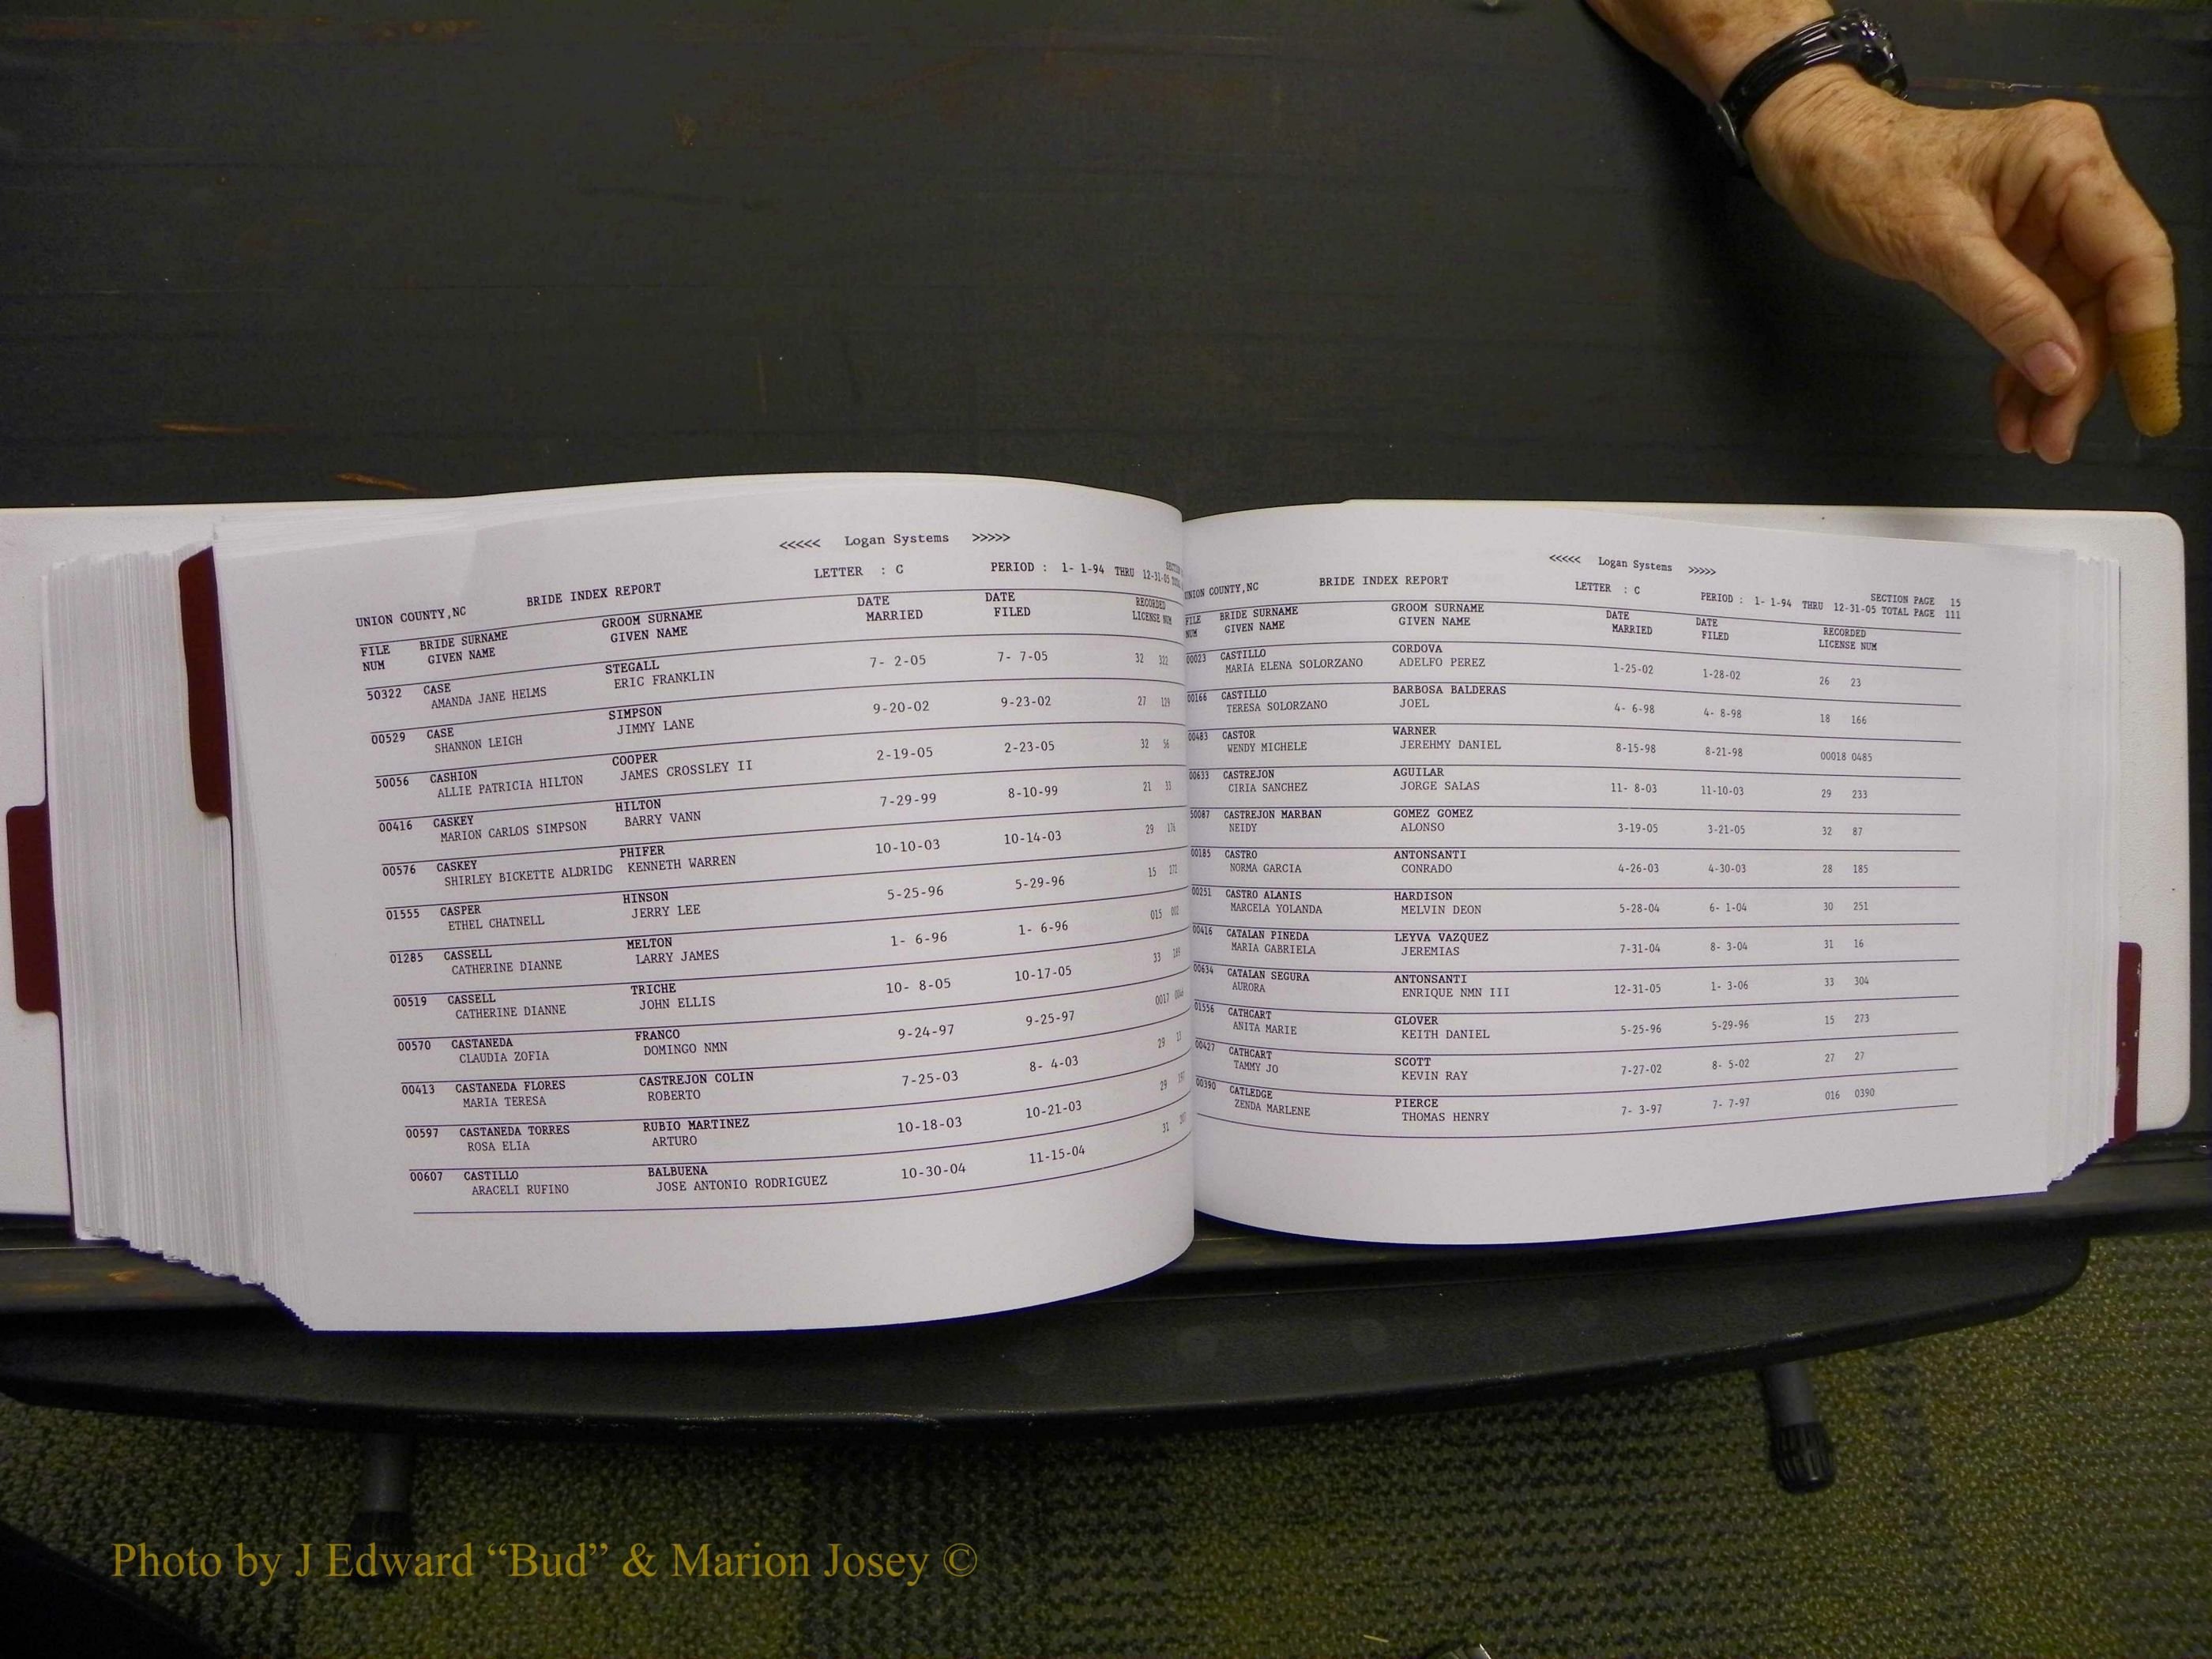 <<<<< Logan Systems >>>>>
UNION COUNTY,NC BRIDE INDEX REPORT LETTER : C PERIOD : 1- 1-94 THRU 12-31-05
FILE BRIDE SURNAME GROOM SURNAME DATE DATE RECORDED
NUM GIVEN NAME GIVEN NAME MARRIED FILED LICENSE NUM
50322 CASE STEGALL 7- 2-05 7- 7-05 32 322
AMANDA JANE HELMS ERIC FRANKLIN
00529 CASE SIMPSON 9-20-02 9-23-02 27 129
SHANNON LEIGH JIMMY LANE
50056 CASHION COOPER 2-19-05 2-23-05 32 56
ALLIE PATRICIA HILTON JAMES CROSSLEY II
00416 CASKEY HILTON 7-29-99 8-10-99 21 33
MARION CARLOS SIMPSON BARRY VANN
00576 CASKEY PHIFER 10-10-03 10-14-03 29 176
SHIRLEY BICKETTE ALDRIDG KENNETH WARREN
01555 CASPER HINSON 5-25-96 5-29-96 15 272
ETHEL CHATNELL JERRY LEE
01285 CASSELL MELTON 1- 6-96 1- 6-96 015 002
CATHERINE DIANNE LARRY JAMES
00519 CASSELL TRICHE 10- 8-05 10-17-05 33 189
CATHERINE DIANNE JOHN ELLIS
00570 CASTANEDA FRANCO 9-24-97 9-25-97 0017
CLAUDIA ZOFIA DOMINGO NMN
00413 CASTANEDA FLORES CASTREJON COLIN 7-25-03 8- 4-03 29 13
MARIA TERESA ROBERTO
00597 CASTANEDA TORRES RUBIO MARTINEZ 10-18-03 10-21-03 29 197
ROSA ELIA ARTURO
00607 CASTILLO BALBUENA 10-30-04 11-15-04 31 207
ARACELI RUFINO JOSE ANTONIO RODRIGUEZ
<<<<< Logan Systems >>>>>
UNION COUNTY,NC BRIDE INDEX REPORT LETTER : C SECTION PAGE 15
PERIOD : 1- 1-94 THRU 12-31-05 TOTAL PAGE 111
FILE BRIDE SURNAME GROOM SURNAME DATE DATE RECORDED
NUM GIVEN NAME GIVEN NAME MARRIED FILED LICENSE NUM
00023 CASTILLO CORDOVA 1-25-02 1-28-02 26 23
MARIA ELENA SOLORZANO ADELFO PEREZ
00166 CASTILLO BARBOSA BALDERAS 4- 6-98 4- 8-98 18 166
TERESA SOLORZANO JOEL
00483 CASTOR WARNER 8-15-98 8-21-98 00018 0485
WENDY MICHELE JEREHMY DANIEL
00633 CASTREJON AGUILAR 11- 8-03 11-10-03 29 233
CIRIA SANCHEZ JORGE SALAS
50087 CASTREJON MARBAN GOMEZ GOMEZ 3-19-05 3-21-05 32 87
NEIDY ALONSO
00185 CASTRO ANTONSANTI 4-26-03 4-30-03 28 185
NORMA GARCIA CONRADO
00251 CASTRO ALANIS HARDISON 5-28-04 6- 1-04 30 251
MARCELA YOLANDA MELVIN DEON
00416 CATALAN PINEDA LEYVA VAZQUEZ 7-31-04 8- 3-04 31 16
MARIA GABRIELA JEREMIAS
00634 CATALAN SEGURA ANTONSANTI 12-31-05 1- 3-06 33 304
AURORA ENRIQUE NMN III
01556 CATHCART GLOVER 5-25-96 5-29-96 15 273
ANITA MARIE KEITH DANIEL
00427 CATHCART SCOTT 7-27-02 8- 5-02 27 27
TAMMY JO KEVIN RAY
00390 CATLEDGE PIERCE 7- 3-97 7- 7-97 016 0390
ZENDA MARLENE THOMAS HENRY
Photo by J Edward “Bud” & Marion Josey ©